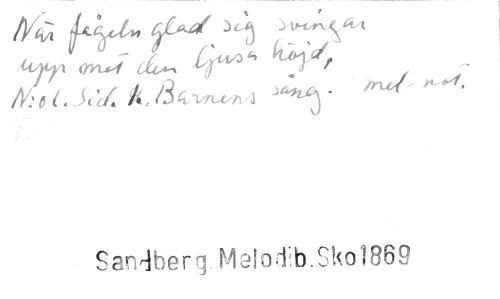 När fågeln glad sig svingar
upp mot den ljusa höjd,
N:o 1. Sid. 1. Barnens sång. mel. not.
Sandberg. Melodib. Sko1869